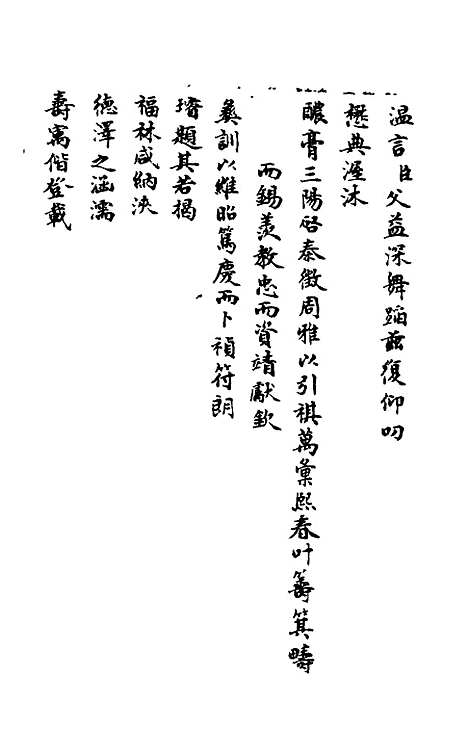 温言日久益深舞蹈兹復仰叨
懋典渥沐
醲膏三陽啓泰徵周雅以引祺萬彙熙春叶籌箕疇
而錫羡教忠而資靖獻欽
彝訓以維昭篤慶而卜禎符朗
璿題其若揭
福祿咸納浹
德澤之涵濡
壽寓偕登載